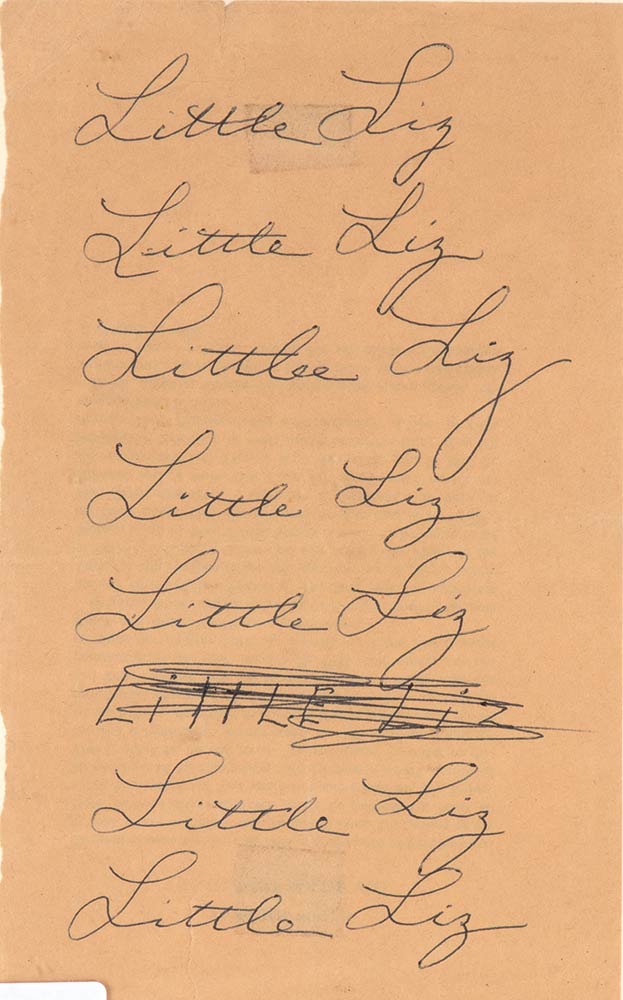 Little Liz
Little Liz
Little Liz
Little Liz
Little Liz
LittLE Liz
Little Liz
Little Liz